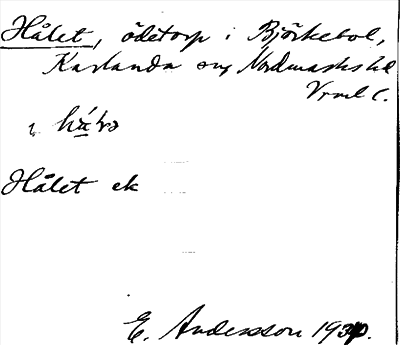 Hålet, ödetorp i Björkebol,
Karlanda sn, Nordmarks hd
Vrml.
i
Hålet ek
E. Andersson